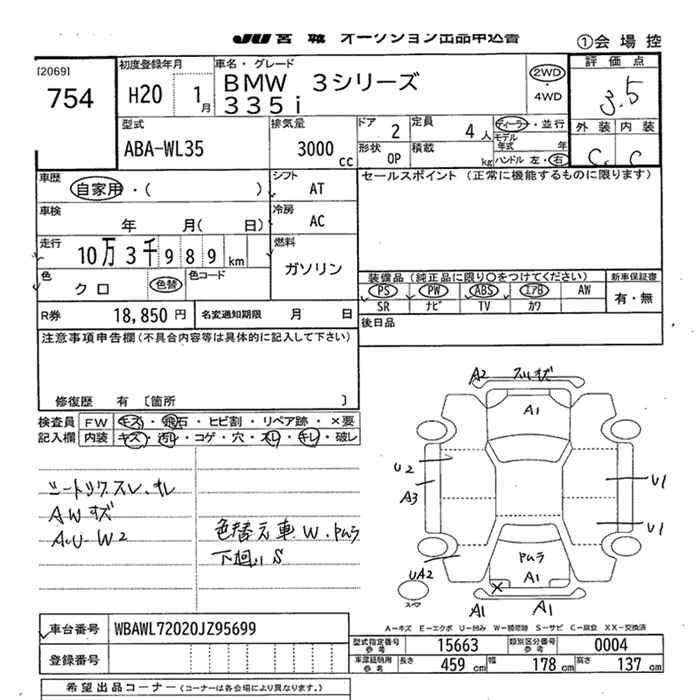 JU 宮城 オークション出品申込書
①会場控
[2069]
754
初度登録年月
H20 1月
車名・グレード
BMW 3シリーズ
335i
2WD
・
4WD
評価点
3.5
型式
ABA-WL35
排気量
3000cc
ドア 2
定員 4人
形状 OP
積載 kg
ディーラー・並行
モデル年式 年
ハンドル 左・右
外装 内装
C C
車歴
自家用・( )
シフト AT
セールスポイント (正常に機能するものに限ります)
車検
年 月( 日)
冷房 AC
走行
10万3千989km
燃料
ガソリン
色
クロ
色替
色コード
装備品(純正品に限り○をつけてください)
新車保証書
PS PW ABS エアB AW
SR ナビ TV カワ
有・無
R券 18,850円
名変通知期限 月 日
後日品
注意事項申告欄(不具合内容等は具体的に記入して下さい)
修復歴 有 〔箇所 〕
検査員記入欄
FW キズ・飛石・ヒビ割・リペア跡・×要
内装 キズ・汚レ・コゲ・穴・スレ・キレ・破レ
AWキズ
A・U・W2
色替え車 W・PMラ
下廻りS
A2 スレキズ
A1
U2
A3
U1
U1
PMラ
A1
UA2
スペア
A1
A1
A―キズ E―エクボ U―凹み W―補修跡 S―サビ C―腐食 XX―交換済
車台番号 WBAWL72020JZ95699
登録番号
型式指定番号 参考 15663
類別区分番号 参考 0004
車庫証明用 参考 長さ 459cm 幅 178cm 高さ 137cm
希望出品コーナー(コーナーは各会場により異なります。)